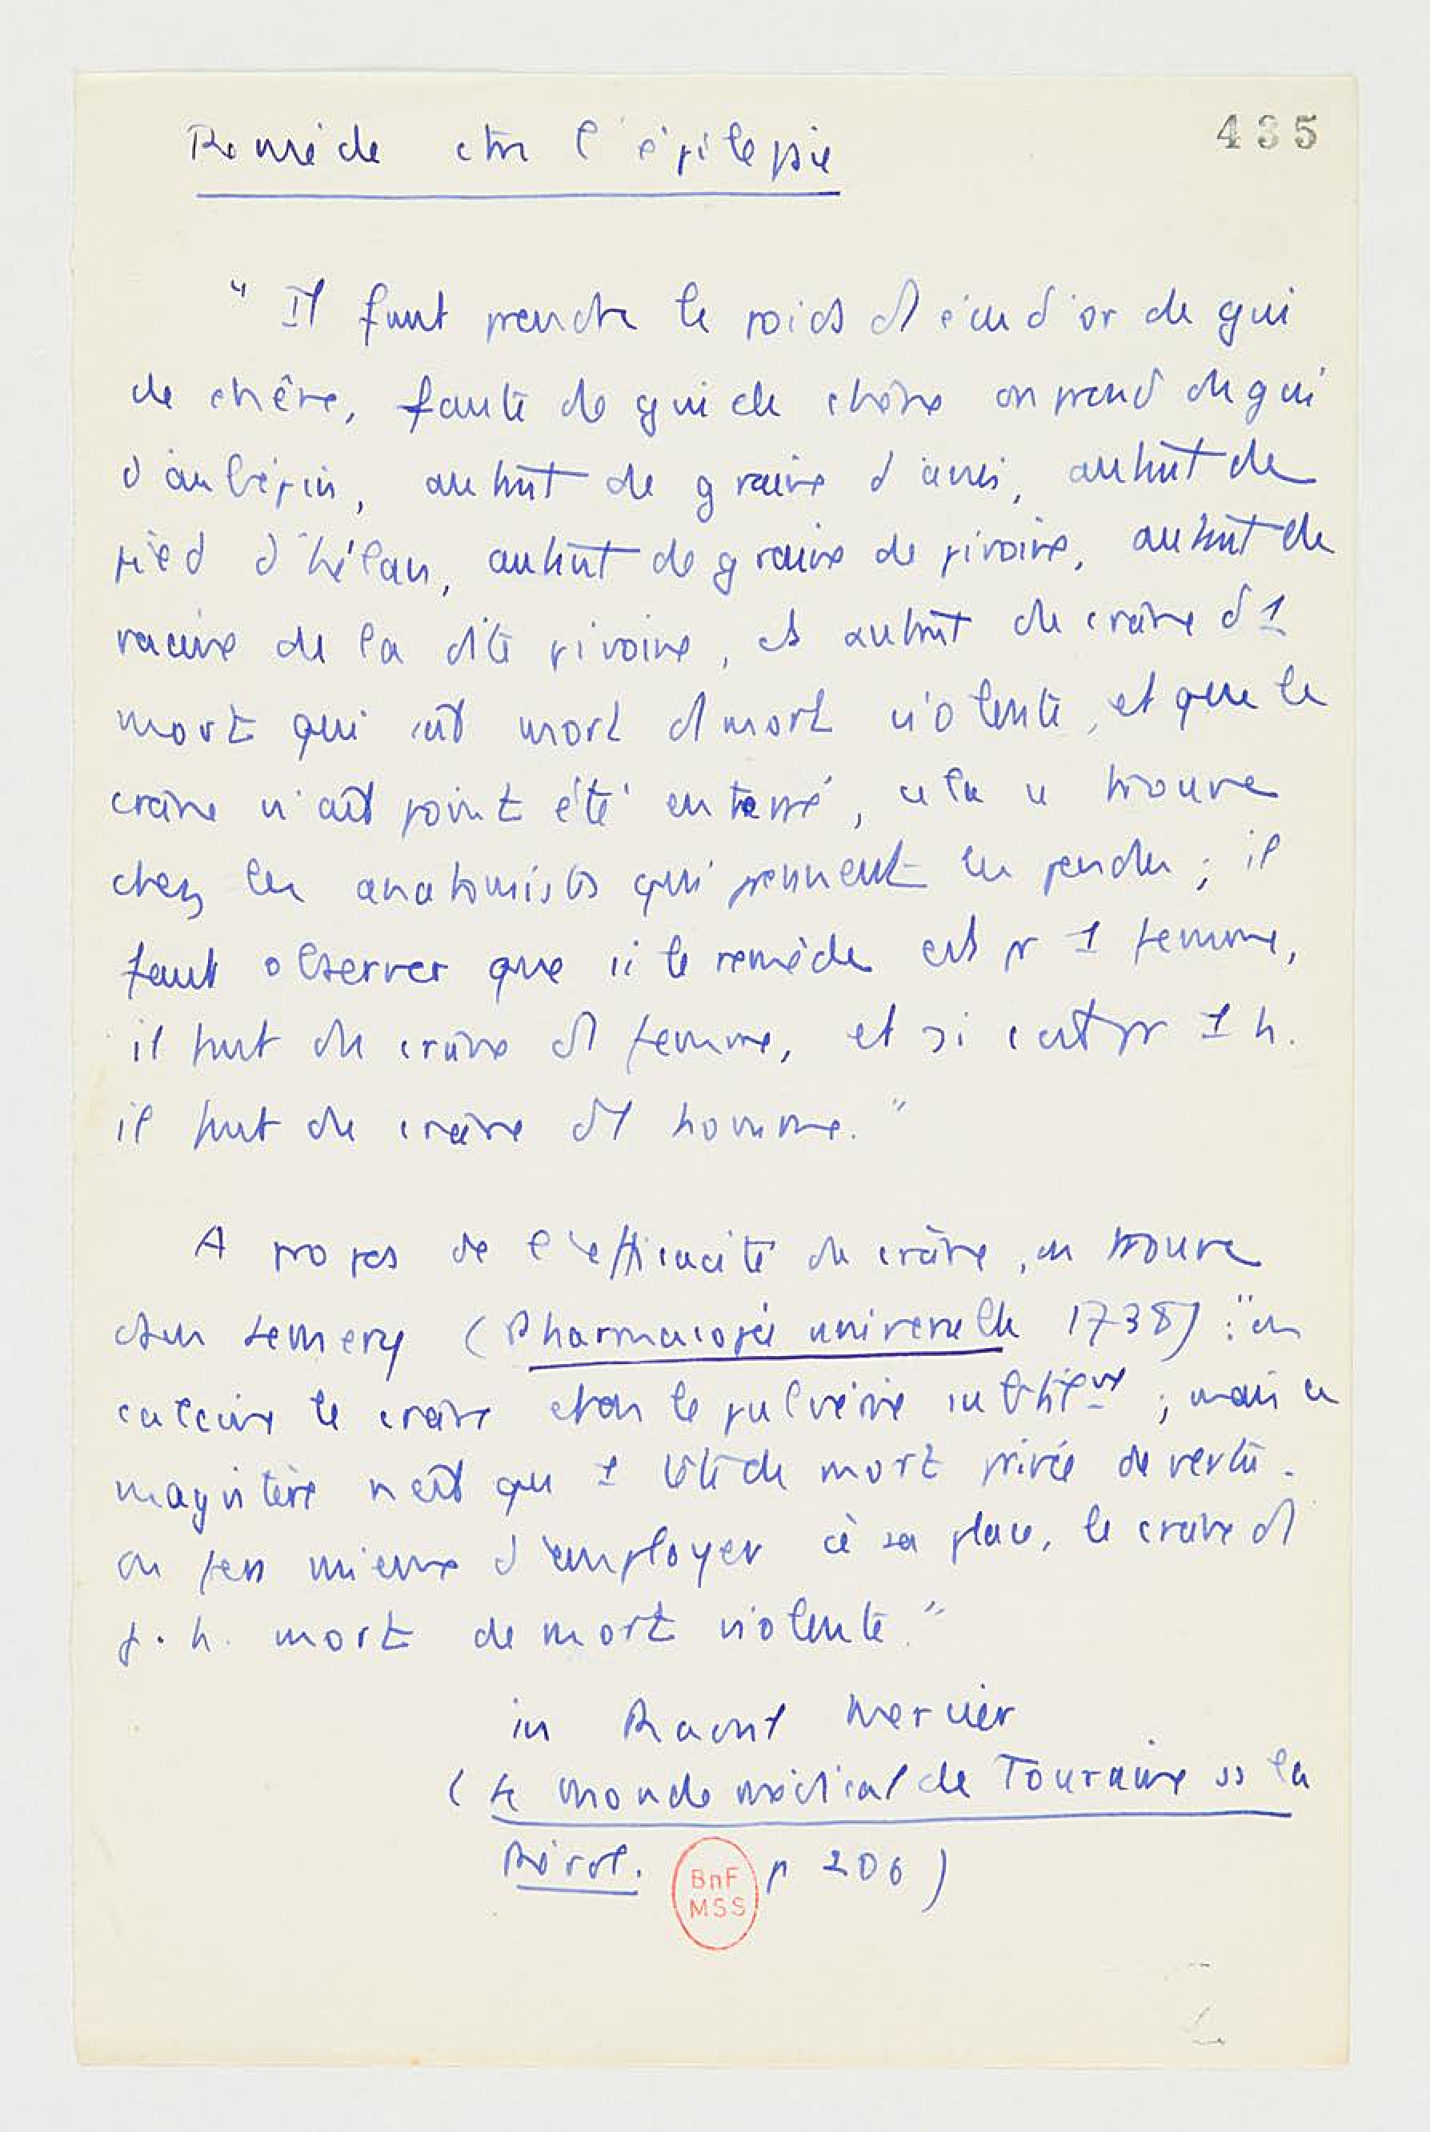 Remède ctre l'épilepsie
435
"Il faut prendre le poids d'1 écu d'or de gui
de chêne, faute de gui de chêne on prend du gui
d'aubépin, autant de graine d'anis, autant de
pied d'hélan, autant de graine de pivoine, autant de
racine de la dite pivoine, et autant de crâne d'1
mort qui est mort d'1 mort violente, et que le
crâne n'ait point été enterré, cela se trouve
chez les anatomistes qui prennent les pendus ; il
faut observer que si le remède est pr 1 femme,
il faut du crâne d'1 femme, et si c'est pr 1 h.
il faut du crâne d'1 homme."
A propos de l'efficacité du crâne, on trouve
chez Lemery (Pharmacopée universelle 1738) : "on
calcine le crâne et on le pulvérise ; mais ce
magistère n'est qu'1 tête de mort privée de vertu.
On fera mieux d'employer à sa place, le crâne d'1
j. h. mort de mort violente."
in Raoul Mercier
(Le monde médical de Touraine ss la
Révol. p 206)
BnF
MSS